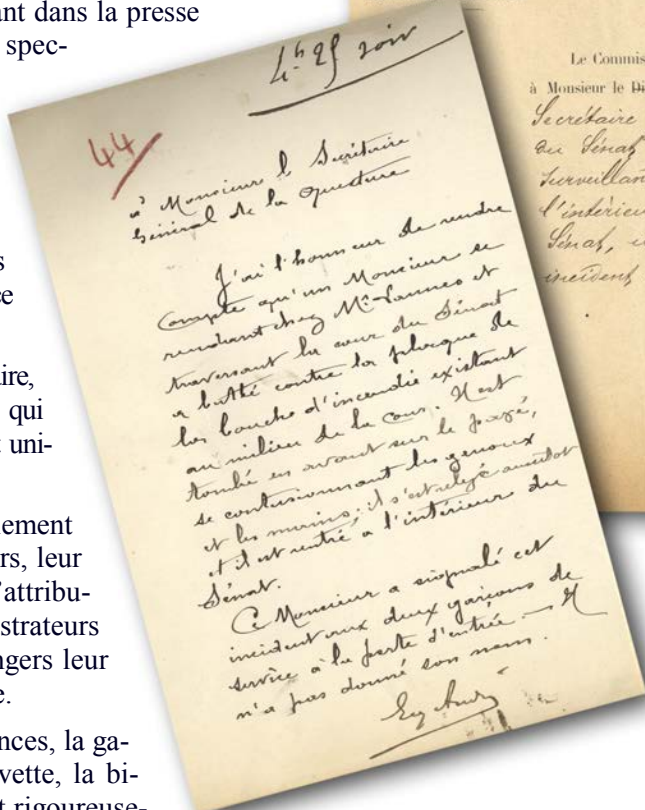 ant dans la presse
spec-
s
ce
ire,
qui
t uni-
lement
rs, leur
'attribu-
strateurs
ngers leur
e.
nces, la ga-
vette, la bi-
t rigoureuse-
4h 25 soir
44
à Monsieur le Secrétaire
Général de la Questure
J'ai l'honneur de rendre
Compte qu'un Monsieur se
rendant chez Mr
traversant la cour du Sénat
a butté contre la plaque de
la bouche d'incendie existant
au milieu de la Cour. Il est
tombé en avant sur le pavé,
se contusionnant les genoux
et les mains; il s'est relevé aussitot
et il est rentré a l'intérieur du
Sénat.
Ce Monsieur a signalé cet
incident aux deux garçons de
service à la porte d'entrée. — Il
n'a pas donné son nom.
Le Commis
à Monsieur le Di
Secrétaire
du Sénat
Surveillan
l'intérieu
Sénat, u
incident